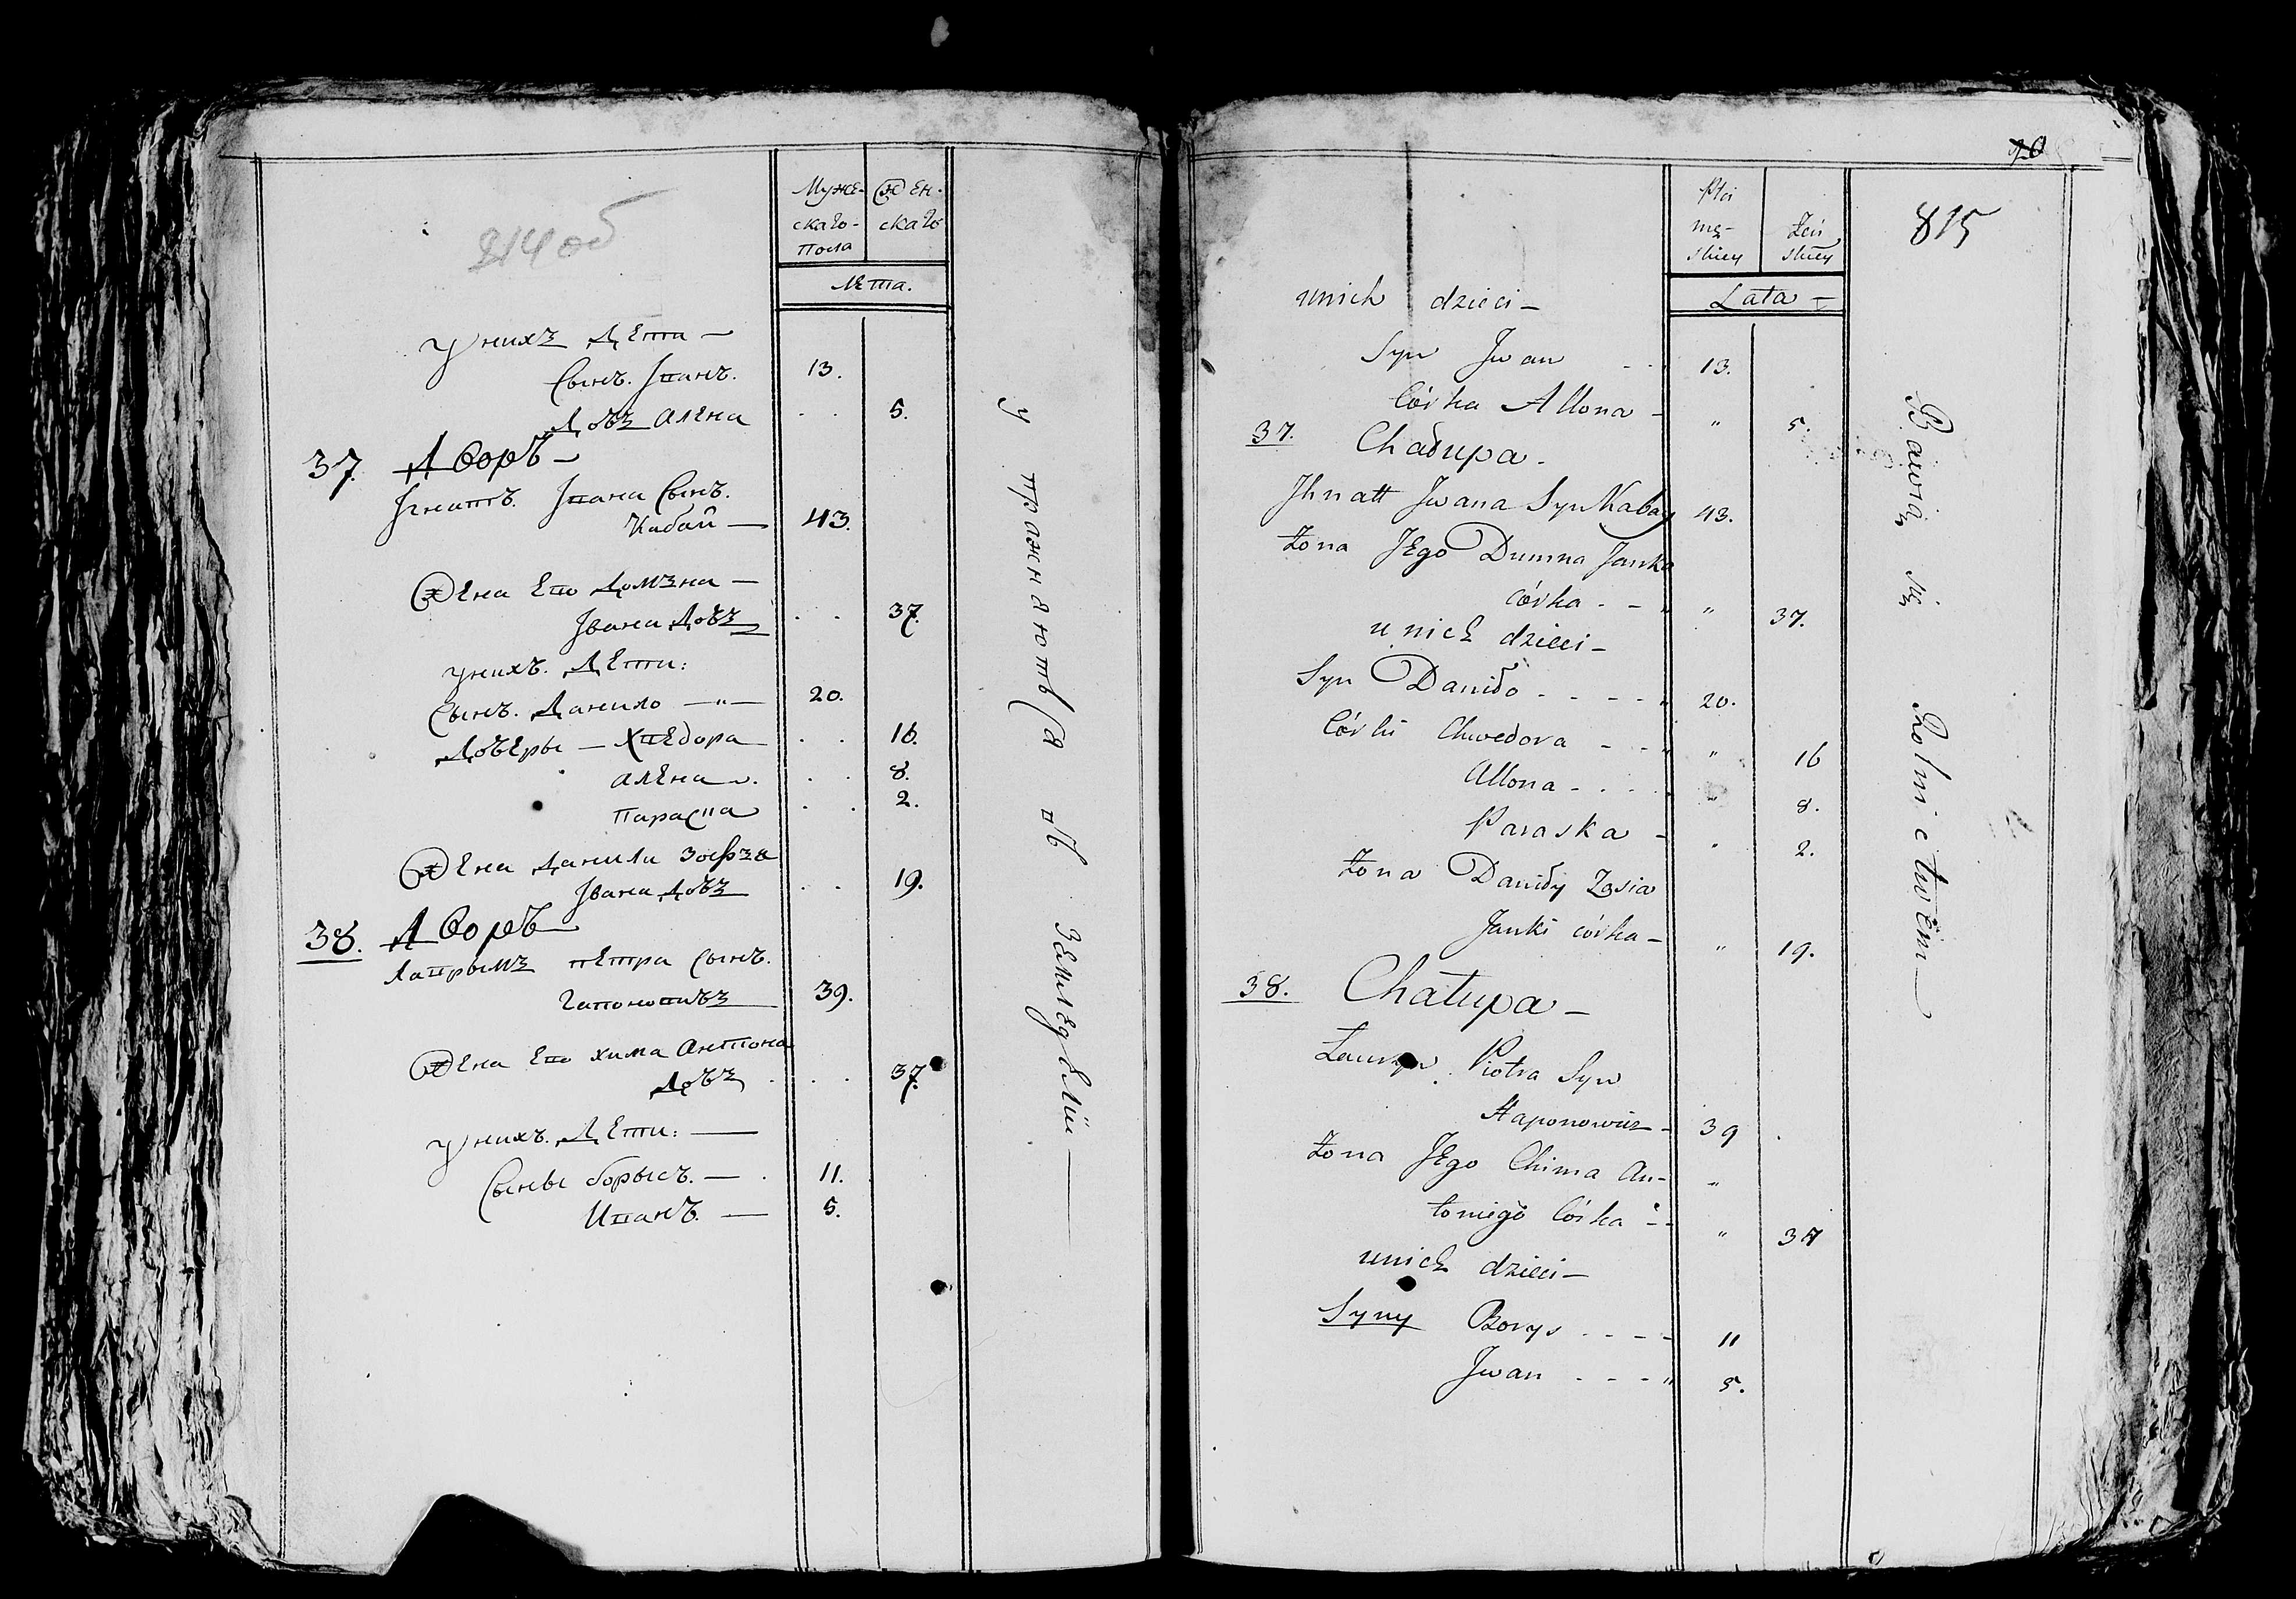 814 об
Муже-
скаго-
Пола
Жен-
скаго
Лета.
у нихъ Дети —
Сынъ. Іванъ. 13.
Довъ Алена . . 5.
37. Дворъ —
Ігнатъ. Івана Сынъ.
Кабай — 43.
Жена Его Домъна —
Івана Довъ . . 37.
унихъ. Дети:
Сынъ. Данило —"— 20.
Довъеры — Хведора . . 16.
алена . . 8.
параска . . 2.
Жена Данилы Зосъя
Івана Довъ . . 19.
38. Дворъ
Лавръимъ петра сынъ.
Гапоновичъ 39.
Жена Его хима Антона
Довъ . . . 37.
унихъ. Дети: —
Сыны борысъ. — . 11.
Иванъ. — 5.
упражняются въ Земледелїи —
70
815
Płci
mę-
skiey
Żeń
skiey
Lata —
unich dzieci —
Syn Jwan . . 13.
Córka Allona - " 5.
37. Chałupa -
Jhnatt Jwana Syn Kabay 43.
Żona JEgo Dumna Janka
córka - - " " 37.
u nich dzieci —
Syn Daniło - - - - " 20.
Córki Chwedora - - " " 16
Allona - . . . " 8.
Paraska - " 2.
Żona Daniły Zosia
Janki córka - " 19.
38. Chałupa —
Piotra Syn
Haponowicz - 39
Żona JEgo Chima An- "
toniego Córka - - " 37
unich dzieci —
Syny Borys - - - - 11
Jwan - - - " 5.
Bawią się Rolnictwem —